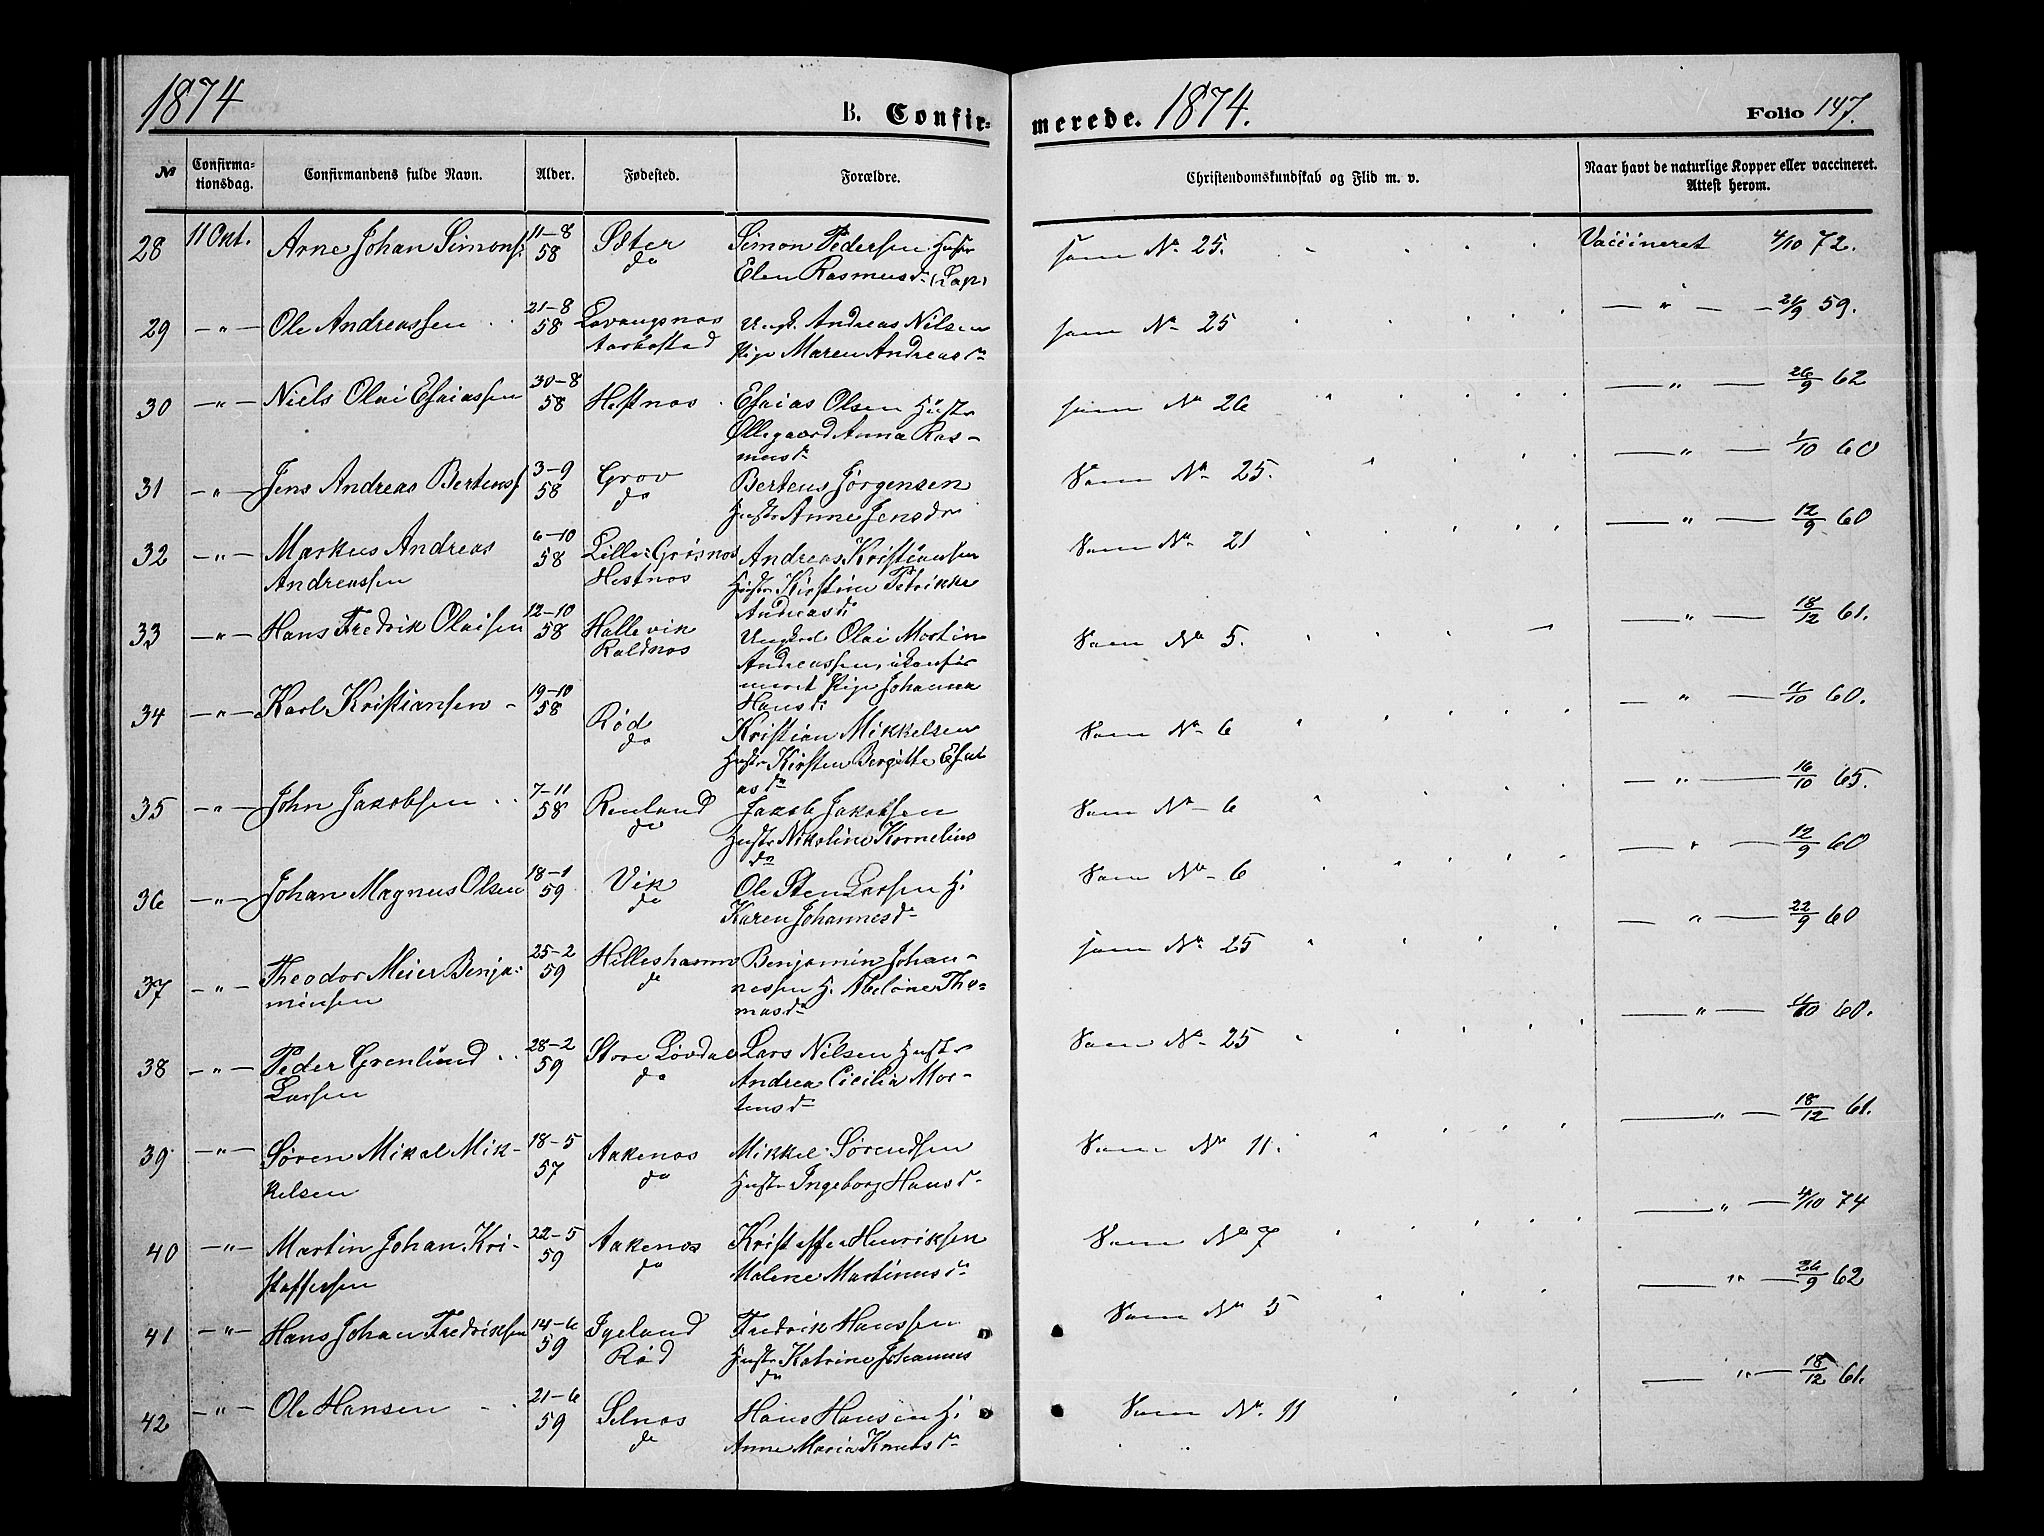 1874
B. Confir-
merede. 1874.
Folio 147.
№
Confirma-
tionsdag.
Confirmandens fulde Navn.
Alder.
Fødested.
Forældre.
Christendomskundskab og Flid m. v.
Naar havt de naturlige Kopper eller vaccineret.
Attest herom.
28 11 Okt. Arne Johan Simons. 11-8 58 Sæter do Simon Pedersen Hustr
Elen Rasmusdr (Lap) som No 25. Vaccineret 4/10 72.
29 -"- Ole Andreassen 21-8 58 Lavangsnæs Aarbostad Ungk. Andreas Nilsen
Pige Maren Andreasdr som No 25 -"- 21/9 59.
30 -"- Niels Olai Esaiassen 30-8 58 Hestnæs Esaias Olsen Hustr
Øllegaard Anna Ras-
musdr som No 26 -"- 26/9 62
31 -"- Jens Andreas Bertens. 3-9 58 Grov do Berteus Jørgensen
Hustr Anne Jensdr Som No 25. -"- 1/10 60
32 -"- Markus Andreas
Andreassen 6-10 58 Lille Grøsnæs Hestnæs Andreas Kristiansen
Hustr Kirstine Petrikke
Andreasdr Som No 21 -"- 12/9 60
33 -"- Hans Fredrik Olaisen 12-10 58 Hallevik Roldnæs Ungkarl Olai Martin
Andreassen, ukonfir
meret Pige Johanna
Hansdr Som No 5. -"- 18/12 61.
34 -"- Karl Kristiansen 19-10 58 Rød do Kristian Mikkelsen
Hustr Kirsten Bergitte Esai
asdr Som No 6 -"- 11/10 60.
35 -"- John Jakobsen 7-11 58 Renland do Jakob Jakobsen
Hustr Nikoline Kornelius
dr Som No 6 -"- 16/10 65.
36 -"- Johan Magnus Olsen 18-1 59 Vik do Ole Sten Larsen H.
Karen Johannesdr Som No 6 -"- 12/9 60
37 -"- Theodor Meier Benja-
minsen 25-2 59 Hilleshamn do Benjamin Johan-
nessen H. Abelone Tho-
masdr som No 25 -"- 22/9 60
38 -"- Peder Grenlund
Larsen 28-2 59 Store Løvdal do Lars Nilsen Hustr
Andrea Cicilia Mor-
tensdr Som No 25 -"- 11/10 60.
39 -"- Søren Mikal Mik-
kelsen 18-5 57 Aakenæs do Mikkel Sørendsen
Hustr Ingeborg Hansdr Som No 11. -"- 18/12 61.
40 -"- Martin Johan Kri-
stoffersen 22-5 59 Aakenæs do Kristoffer Henriksen
Malene Martinusdr Som No 7 -"- 4/10 74
41 -"- Hans Johan Fredriksen 14-6 59 Igeland Rød Fredrik Hanssen
Hustr Katrine Johannes
dr Som No 5 -"- 26/9 62
42 -"- Ole Hansen 21-6 59 Selnæs do Hans Hansen H.
Anne Maria Knudsdr Som No 11 -"- 18/12 61.